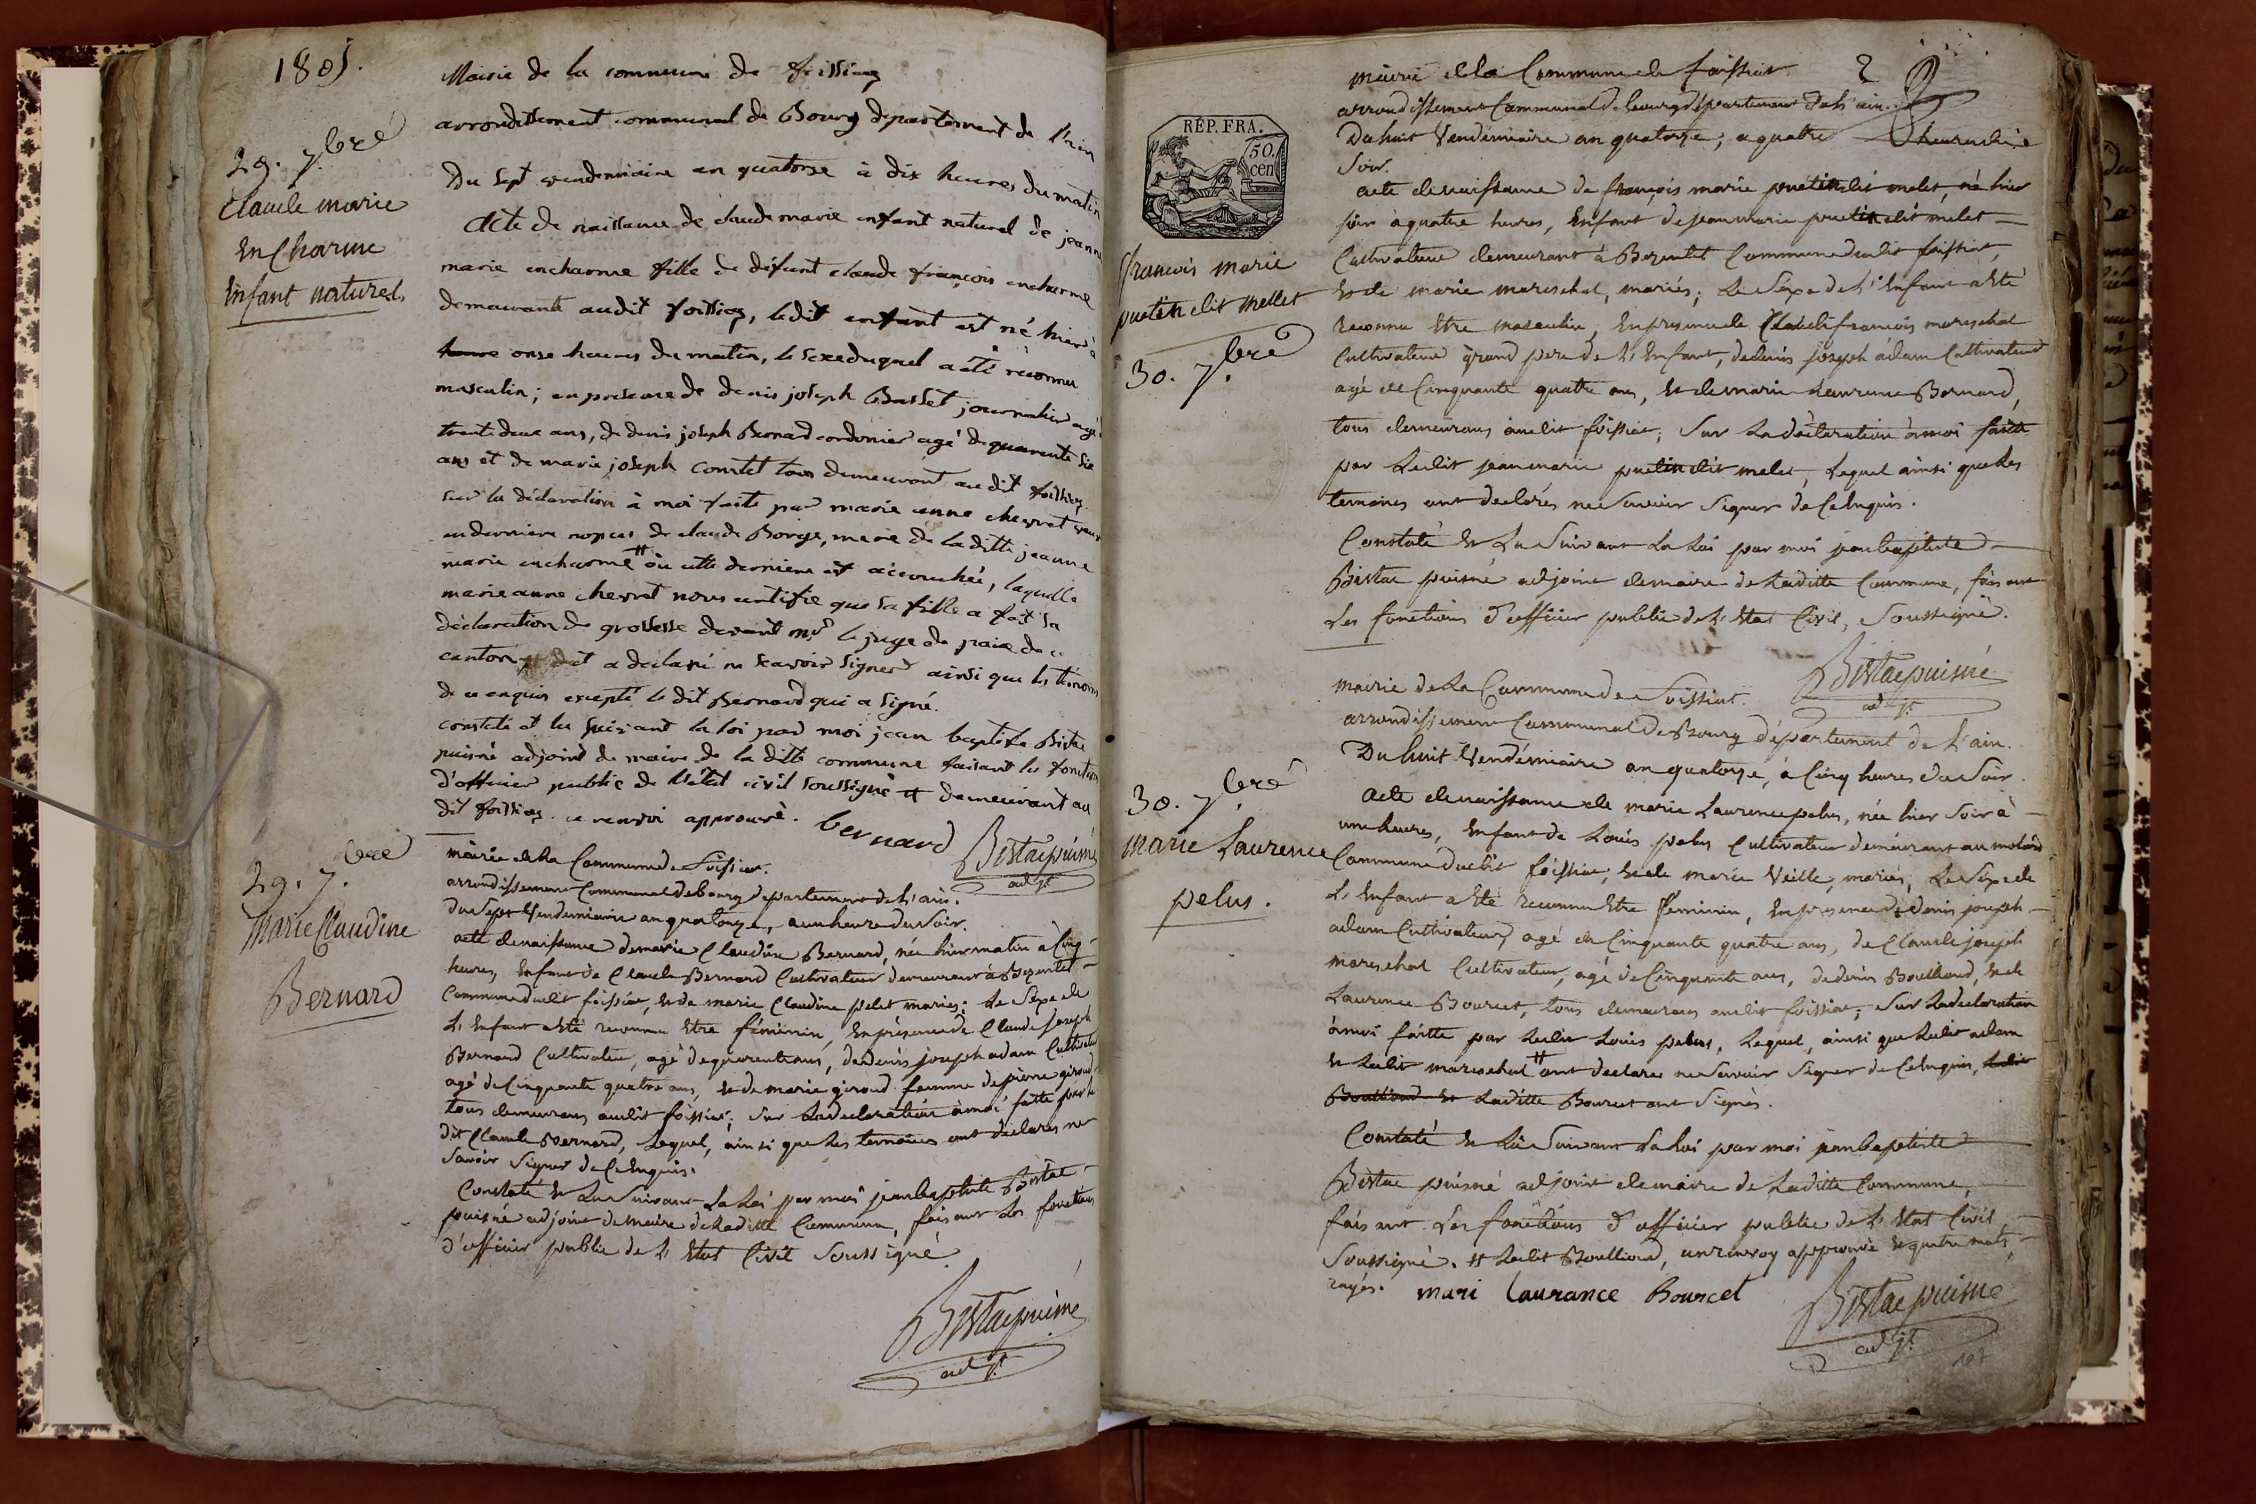 1805.
29. 7.bre
Claude marie
EnCharme
Enfant naturel.
Mairie de la commune de foissiaz
arrondissement communal de Bourg departement de l'ain
Du sept vendemiaire an quatorse à dix heures du matin
Acte de naissance de claude marie enfant naturel de jeanne
marie encharme fille de défunt claude françois encharme
demeurante audit foissiaz, ledit enfant est né hier à
heure onse heures du matin, le sexe duquel a été reconnu
masculin; en presence de denis joseph Basset journalier agé
trente deux ans, de denis joseph Bernard cordonier agé de quarente six
ans et de marie joseph Comtet tous demeurant au dit foissiaz
sur la déclaration à moi faite par marie anne chevret veuve
en derniere nopces de claude Borge, mere de la ditte jeanne
marie encharme # où cette derniere est accouchée, laquelle
marie anne chevret nous certifie que sa fille a fait sa
déclaration de grossesse devant mr le juge de paix de ce
canton et a déclaré ne scavoir signer ainsi que les témoins
de ce enquis excepté le dit Bernard qui a signé.
constaté et lu suivant la loi par moi jean baptiste Bistac
puisné adjoint de maire de la ditte commune faisant les fonctions
d'officier public de l'état civil soussigné # demeurant au
dit foissiaz. ce renvoi approuvé. bernard Bistac puisné
adjt
29. 7.bre
Marie Claudine
Bernard
mairie de la Commune de foissiat.
arrondissement Communal de bourg departement de l'ain.
Du Sept Vendemiaire an quatorze, a une heure du Soir.
acte de naissance de marie Claudine Bernard, née hier matin à Cinq
heures, Enfant de Claude Bernard Cultivateur demeurant à Bezentet
Commune dudit foissiat, et de marie Claudine pelet mariés: Le Sexe de
L'Enfant a Eté reconnu Etre féminin, En présence de Claude joseph
Bernard Cultivateur, agé de quarente ans, de denis joseph adam Cultivateur
agé de Cinquante quatre ans, et de marie giroud femme de pierre giroud
tous demeurans audit foissiat; Sur La déclaration à moi faitte par le
dit Claude Bernard, Lequel, ainsi que Les temoins ont déclarés ne
Savoir Signer de Ce Enquis.
Constaté et Lu Suivant La Loi par moi jean baptiste Bistac
puisné adjoint de maire de Laditte Commune, faisant Les fonctions
d'officier public de L'Etat Civil Soussigné.
Bistac puisné
adjt
REP. FRA.
50.
cen
françois marie
puetin dit mellet
30. 7.bre
mairie de la Commune de foissiat. 2
arrondissement Communal de bourg departement de L'ain.
Du huit Vendemiaire an quatorze, a quatre heures du
Soir.
acte de naissance de françois marie puetin dit melet, né hier
soir à quatre heures, Enfant de jean marie puetin dit melet
Cultivateur demeurant à Bezentet Commune dudit foissiat,
et de marie mareschal, mariés; Le Sexe de L'Enfant a Eté
reconnu Etre masculin, En presence de Claude françois mareschal
Cultivateur grand pere de L'Enfant, de denis joseph adam Cultivateur
agé de Cinquante quatre ans, et de marie Laurence Bernard,
tous demeurans audit foissiat; Sur La déclaration à moi faitte
par Ledit jean marie puetin dit melet, Lequel ainsi que Les
temoins ont declarés ne Savoir Signer de Ce Enquis.
Constaté et Lu Suivant La Loi par moi jean baptiste
Bistac puisné adjoint de maire de Laditte Commune, faisant
Les fonctions d'officier public de L'Etat Civil, Soussigné.
Bistac puisné
adjt
30. 7.bre
Marie Laurence
pelus.
mairie de La Commune de foissiat.
arrondissement Communal de Bourg département de L'ain.
Du huit Vendémiaire an quatorze, à Cinq heures du Soir.
Acte de naissance de marie Laurence pelus, née hier Soir à
une heures, Enfant de Louis pelus Cultivateur demeurant au molard
Commune dudit foissiat, et de marie Vieille, mariés, Le Sexe de
L'Enfant a Eté reconnu Etre feminin, En presence de denis joseph
adam Cultivateur, agé de Cinquante quatre ans, de Claude joseph
mareschal Cultivateur, agé de Cinquante ans, de denis Boulliaud, et de
Laurence Bourcet, tous demeurans audit foissiat; Sur La declaration
à moi faitte par Ledit Louis pelus, Lequel, ainsi que Ledit adam
et Ledit mareschal # ont declarés ne Savoir Signer de Ce Enquis, Ledit
Boulliaud et Laditte Bourcet ont Signés.
Constaté et Lu Suivant La Loi par moi jean baptiste
Bistac puisné adjoint de maire de Laditte Commune,
faisant Les fonctions d'officier public de L'Etat Civil,
Soussigné. # Ledit Boulliaud, un renvoy approuvé et quatre mots
rayés. mari Laurance Bourcet Bistac puisné
adjt
107